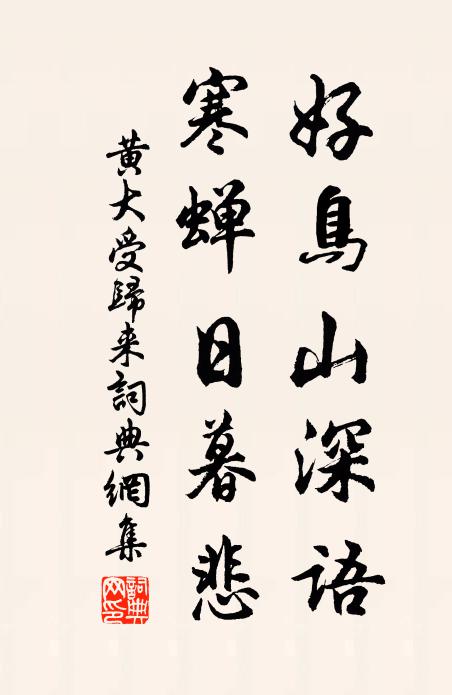 好鳥山深語
寒蟬日暮悲
黄大受歸来詞典網集
詞典網印